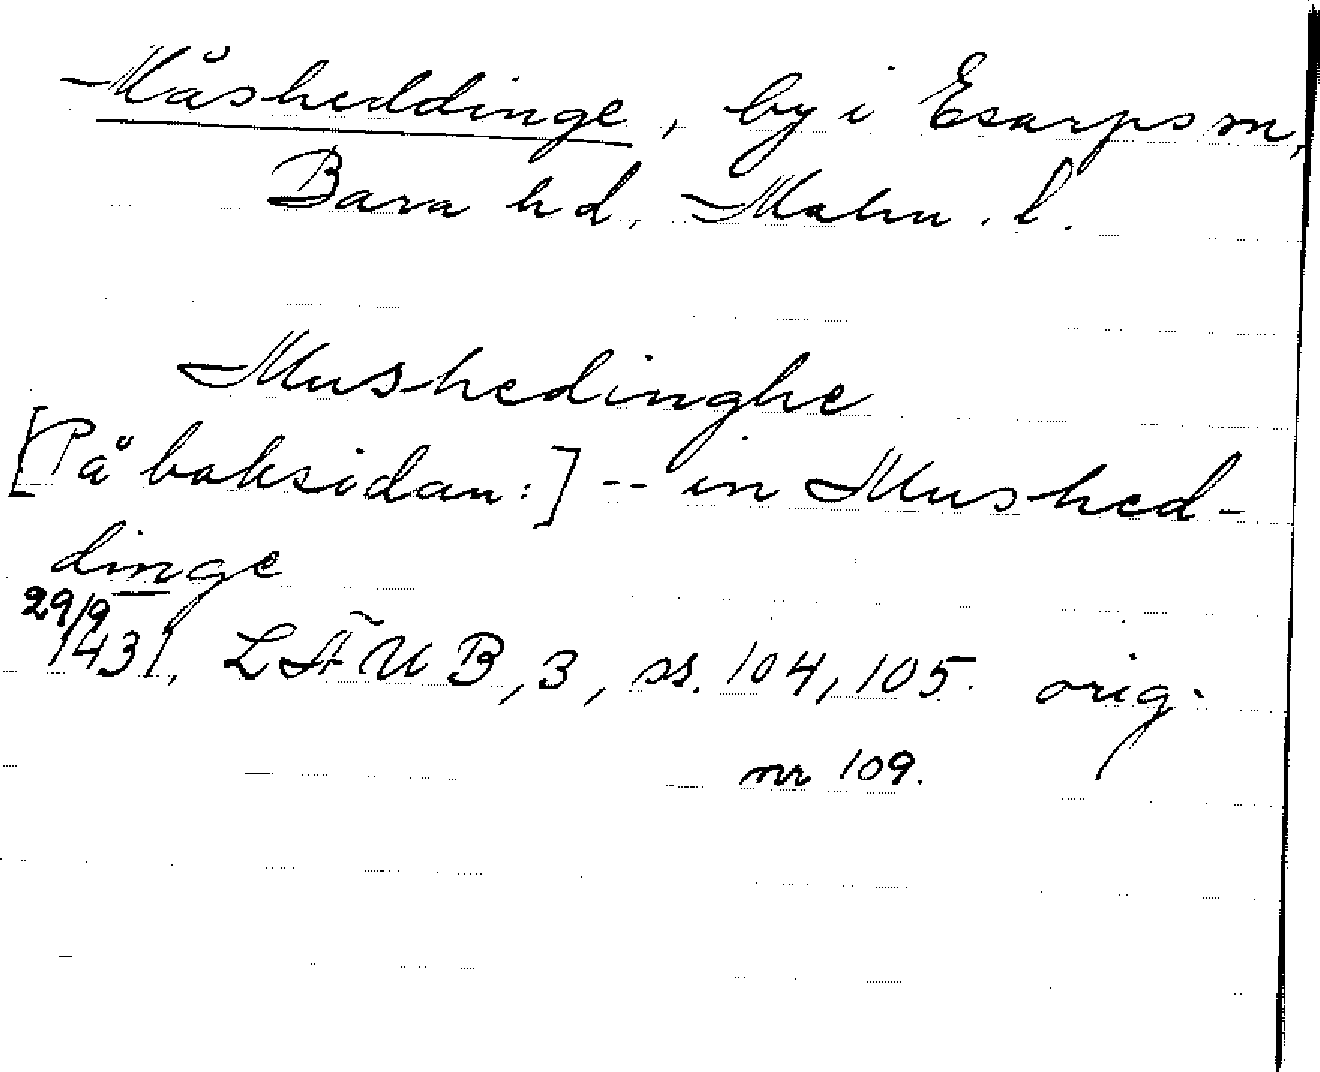 Måsheddinge, by i Esarps sn,
Bara hd, Malm. l.
Mushedinghe
[På baksidan:] -- in Mushed-
dinge
29/9 1431, LÄUB, 3, ss. 104, 105. orig.
nr 109.